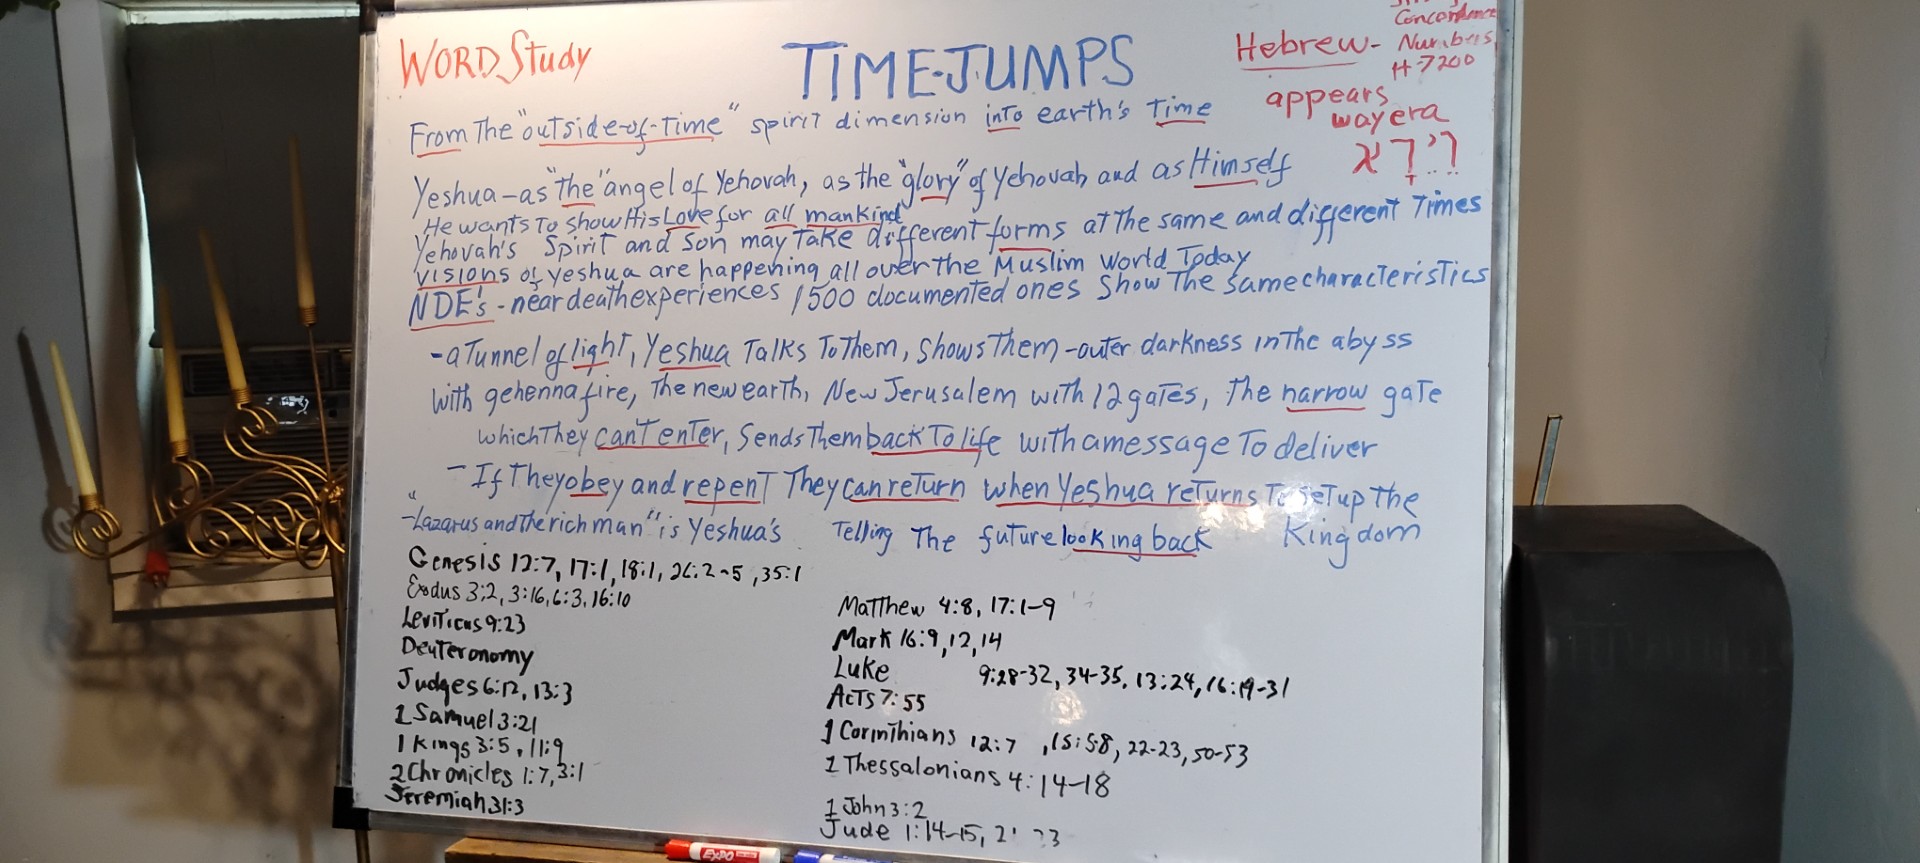 WORD Study
TIME-JUMPS
Hebrew-
Concordance
Numbers
H-7200
appears
wayera
וירא
From The "outside-of-Time" spirit dimension into earth's Time
Yeshua-as "the" angel of Yehovah, as the "glory" of Yehovah and as Himself
He wants To show His Love for all mankind
Yehovah's Spirit and Son may Take different forms at the same and different Times
visions of Yeshua are happening all over the Muslim World Today
NDE's - near death experiences 1500 documented ones Show The same characteristics
-a Tunnel of light, Yeshua Talks To Them, Shows Them -outer darkness in The abyss
with gehenna fire, The new earth, New Jerusalem with 12 gates, The narrow gate
which They can't enter, Sends Them back To life with a message To deliver
- If They obey and repent They can return when Yeshua returns To set up The
Kingdom
-"Lazarus and The rich man" is Yeshua's Telling The future looking back
Genesis 12:7, 17:1, 18:1, 26:2-5, 35:1
Exodus 3:2, 3:16, 6:3, 16:10
Leviticus 9:23
Deuteronomy
Judges 6:12, 13:3
1 Samuel 3:21
1 Kings 3:5, 11:9
2 Chronicles 1:7, 3:1
Jeremiah 31:3
Matthew 4:8, 17:1-9
Mark 16:9, 12, 14
Luke 9:28-32, 34-35, 13:24, 16:19-31
Acts 7:55
1 Corinthians 12:7, 15:5-8, 22-23, 50-53
1 Thessalonians 4:14-18
1 John 3:2
Jude 1:14-15,
EXPO